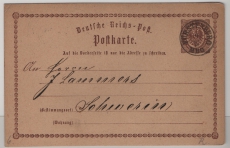 Deutsche Reichs-Post.
Postkarte.
Auf die Vorderseite ist nur die Adresse zu schreiben.
An Herrn
J. Lammers
(Bestimmungsort) Schwerin
(Wohnung)